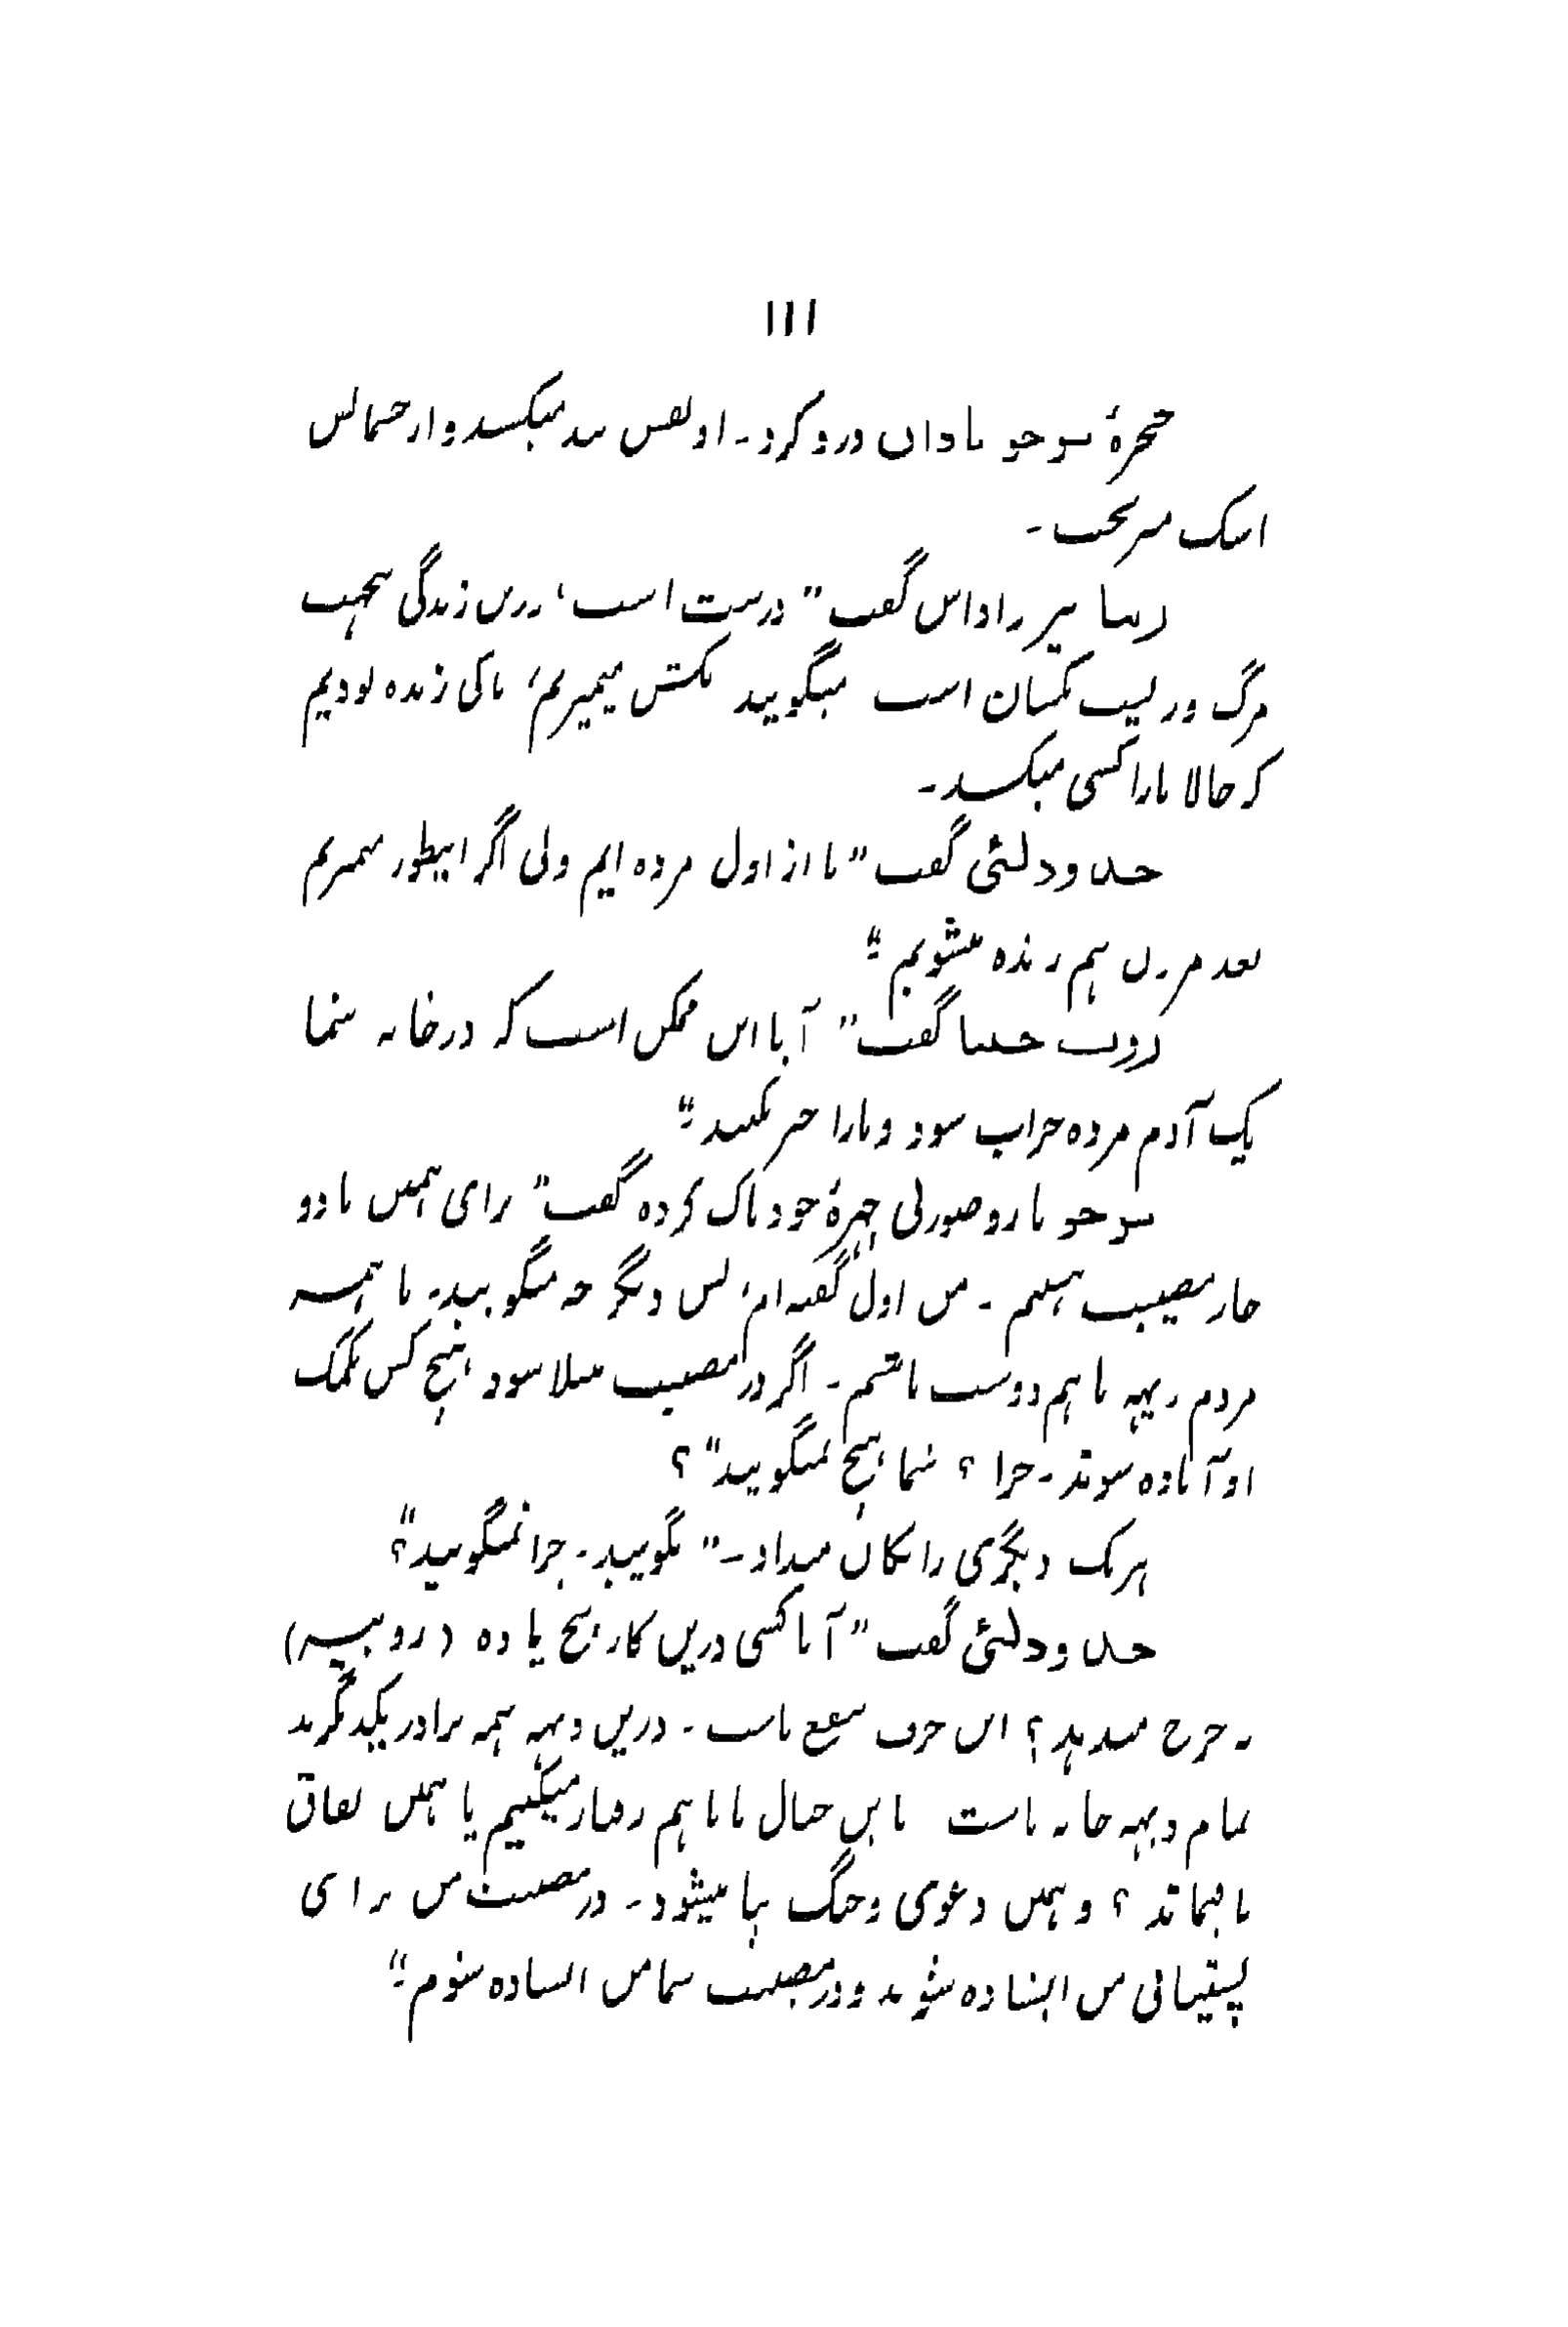 ۱۱۱
حنجرۀ سوجو بادان درد کرد۔ او نفس تند میکشد و از چشمانش
اشک میریخت۔
دینا پیر را داس گفت "درست است، درین زندگی بجهت
مرگ و زیست یکسان است میگویید بکشتن میمیریم، ما کی زنده بودیم
کہ حالا مارا کسی میکشد۔
گفت "ما از اول مرده ایم ولی اگر اینطور بمیریم
بعد مردن ہم زنده میشویم"
گفت "آیا این ممکن است کہ در خانہ شما
یک آدم مرده خراب شود و مارا خبر نکنید"
سوجو با رو صورتی چہرۀ خود پاک کرده گفت "برای ہمین ما دو
چار مصیبت ہستیم ۔ من اول گفتہ ام، پس دیگر چہ میگویید۔ ما ہمہ
مردم دیہہ باہم دوست باشیم۔ اگر در مصیبت مبتلا شود ہیچ کس بکمک
او آماده شوند۔ چرا ؟ شما ہیچ نمیگویید" ؟
ہریک دیگری را تکان میداد۔ "بگویید۔ چرا نمیگویید"؟
گفت "آیا کسی درین کار پنج یا ده (روپیہ)
بہ خرج میدہد؟ این حرف بنفع ماست ۔ درین دیہہ ہمہ برادر یکدیگرند
تمام دیہہ خانہ ماست با این حال ما باہم رفتار میکنیم یا ہمین نفاق
ما بماند ؟ و ہمین دعوی و جنگ بپا میشود۔ در مصیبت من برای
پشتیبانی من ایستاده شوند و در مصیبت شما من ایستاده شوم"